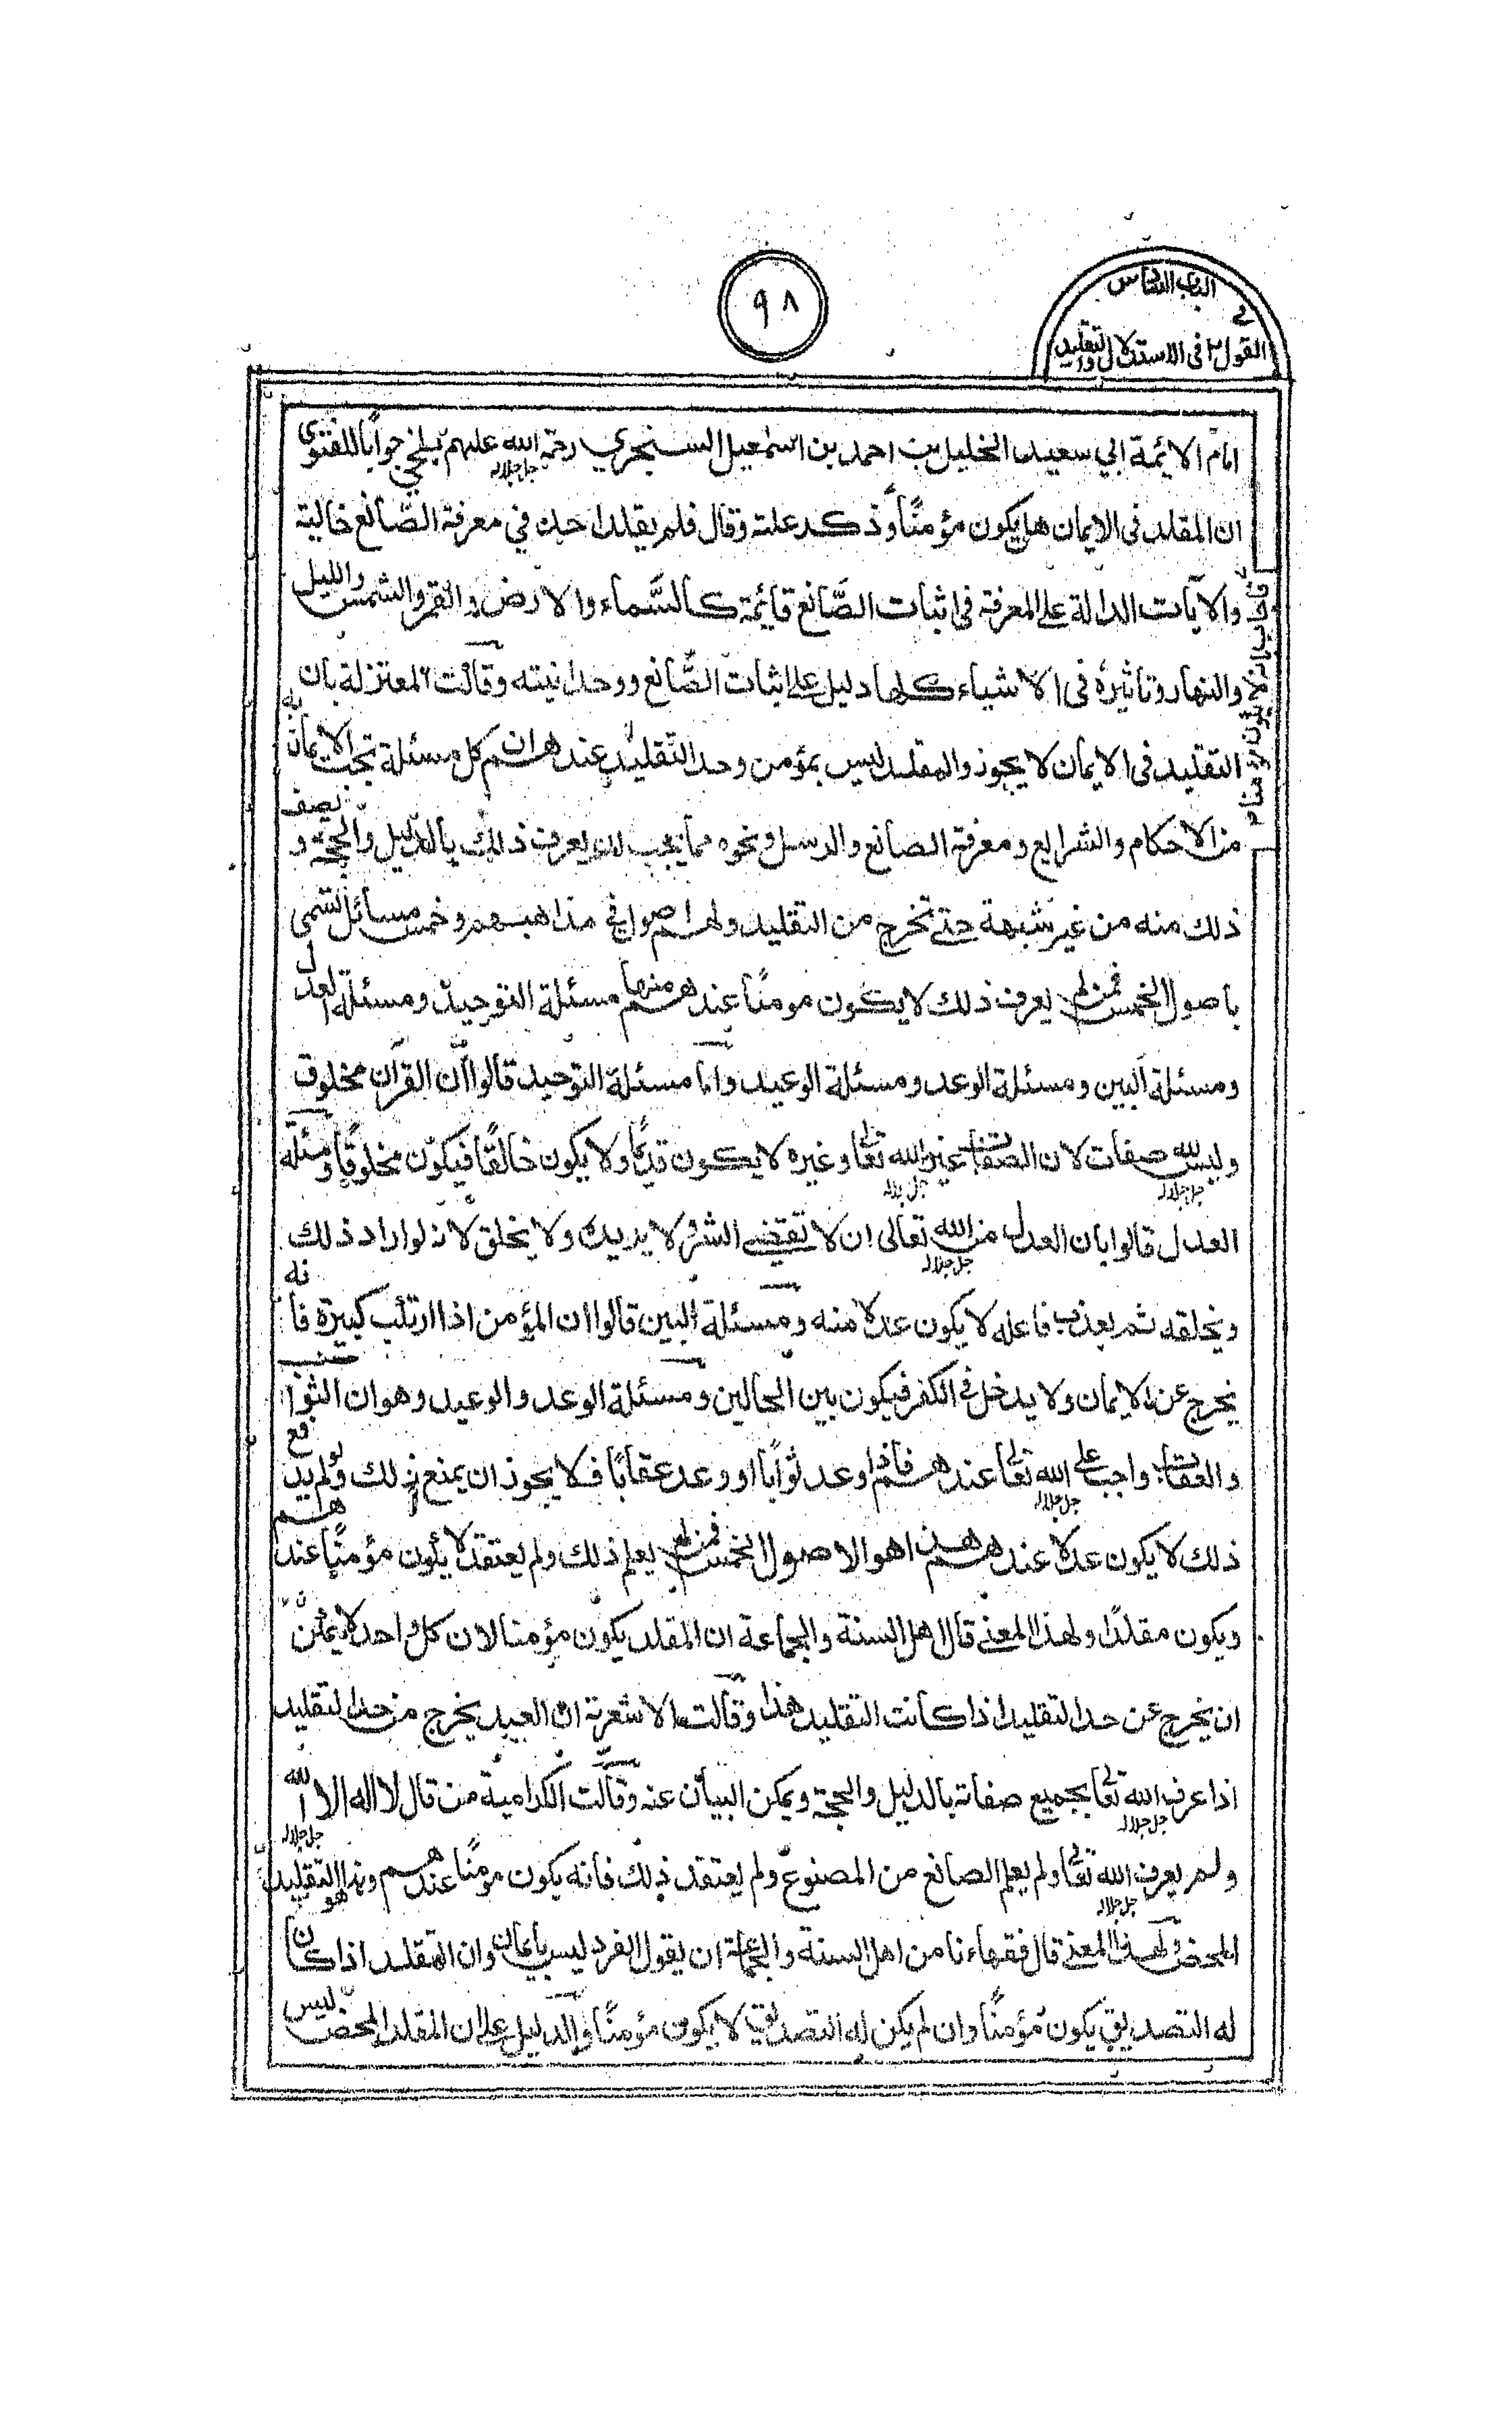 الباب السادس
في
القول ٢ في الاستدلال والتقليد
٩٨
امام الائمة ابي سعيد الخليل بن احمد بن اسمعيل السنجري رحمة الله عليهم ببلخ جوابا للفتوى
جل جلاله
ان المقلد في الايمان هل يكون مؤمنًا وذكر علته وقال فلم يقلد احد في معرفة الصَّانع خالية
والآيات الدالة على المعرفة في اثبات الصَّانع قائمة كالسَّماء والارض والقمر والشمس والليل
والنهار وتأثيره في الاشياء كلها دليل على اثبات الصَّانع ووحدانيته وقالت المعتزلة بان
التقليد في الايمان لا يجوز والمقلد ليس بمؤمن وحد التقليد عندهم ان كل مسئلة تحت الايمان
من الاحكام والشرايع ومعرفة الصانع والرسل ونحوه مما يجب ان يعرف ذلك بالدليل والحجة و يصف
ذلك منه من غير شبهة حتى تخرج من التقليد ولهم اصول في مذاهبهم وخمس مسائل تسمى
باصول الخمس فمن لم يعرف ذلك لا يكون مومنًا عندهم منها مسئلة التوحيد ومسئلة العدل
ومسئلة البين ومسئلة الوعد ومسئلة الوعيد واما مسئلة التوحيد قالوا ان القرآن مخلوق
وليس لله صفات لان الصفات غير الله تعالى وغيره لا يكون قديمًا ولا يكون خالقًا فيكون مخلوقًا ومسئلة
جل جلاله جل جلاله
العدل قالوا بان العدل من الله تعالى ان لا تقتضي الشر ولا يريده ولا يخلق لانه لو اراد ذلك
جل جلاله
ويخلقه ثم يعذب فاعله لا يكون عدلا منه ومسئلة البين قالوا ان المؤمن اذا ارتكب كبيرة فانه
يخرج عن الايمان ولا يدخل في الكفر فيكون بين الحالين ومسئلة الوعد والوعيد وهو ان الثواب
والعقاب واجب على الله تعالى عندهم فاذا وعد ثوابًا او وعد عقابًا فلا يجوز ان يمنع ذلك ولو لم يدفع
جل جلاله
ذلك لا يكون عدلا عندهم هذا هو الاصول الخمس فمن لم يعلم ذلك ولم يعتقد لا يكون مؤمنًا عندهم
ويكون مقلدًا ولهذا المعنى قال اهل السنة والجماعة ان المقلد يكون مؤمنا لان كل واحد لا يمكن
ان يخرج عن حد التقليد اذا كانت التقليد هذا وقالت الاشعرية ان العبد يخرج من حد التقليد
اذا عرف الله تعالى بجميع صفاته بالدليل والحجة ويمكن البيان عنه وقالت الكرامية من قال لا اله الا الله
جل جلاله جل جلاله
ولم يعرف الله تعالى ولم يعلم الصانع من المصنوع ولم يعتقد ذلك فانه يكون مؤمنًا عندهم وهذا هو التقليد
جل جلاله
المحض ولهذا المعنى قال فقهاءنا من اهل السنة والجماعة ان يقول الفرد ليس بايمان وان المقلد اذا كان
له التصديق يكون مؤمنًا وان لم يكن له التصديق لا يكون مؤمنًا والدليل على ان المقلد المحض ليس